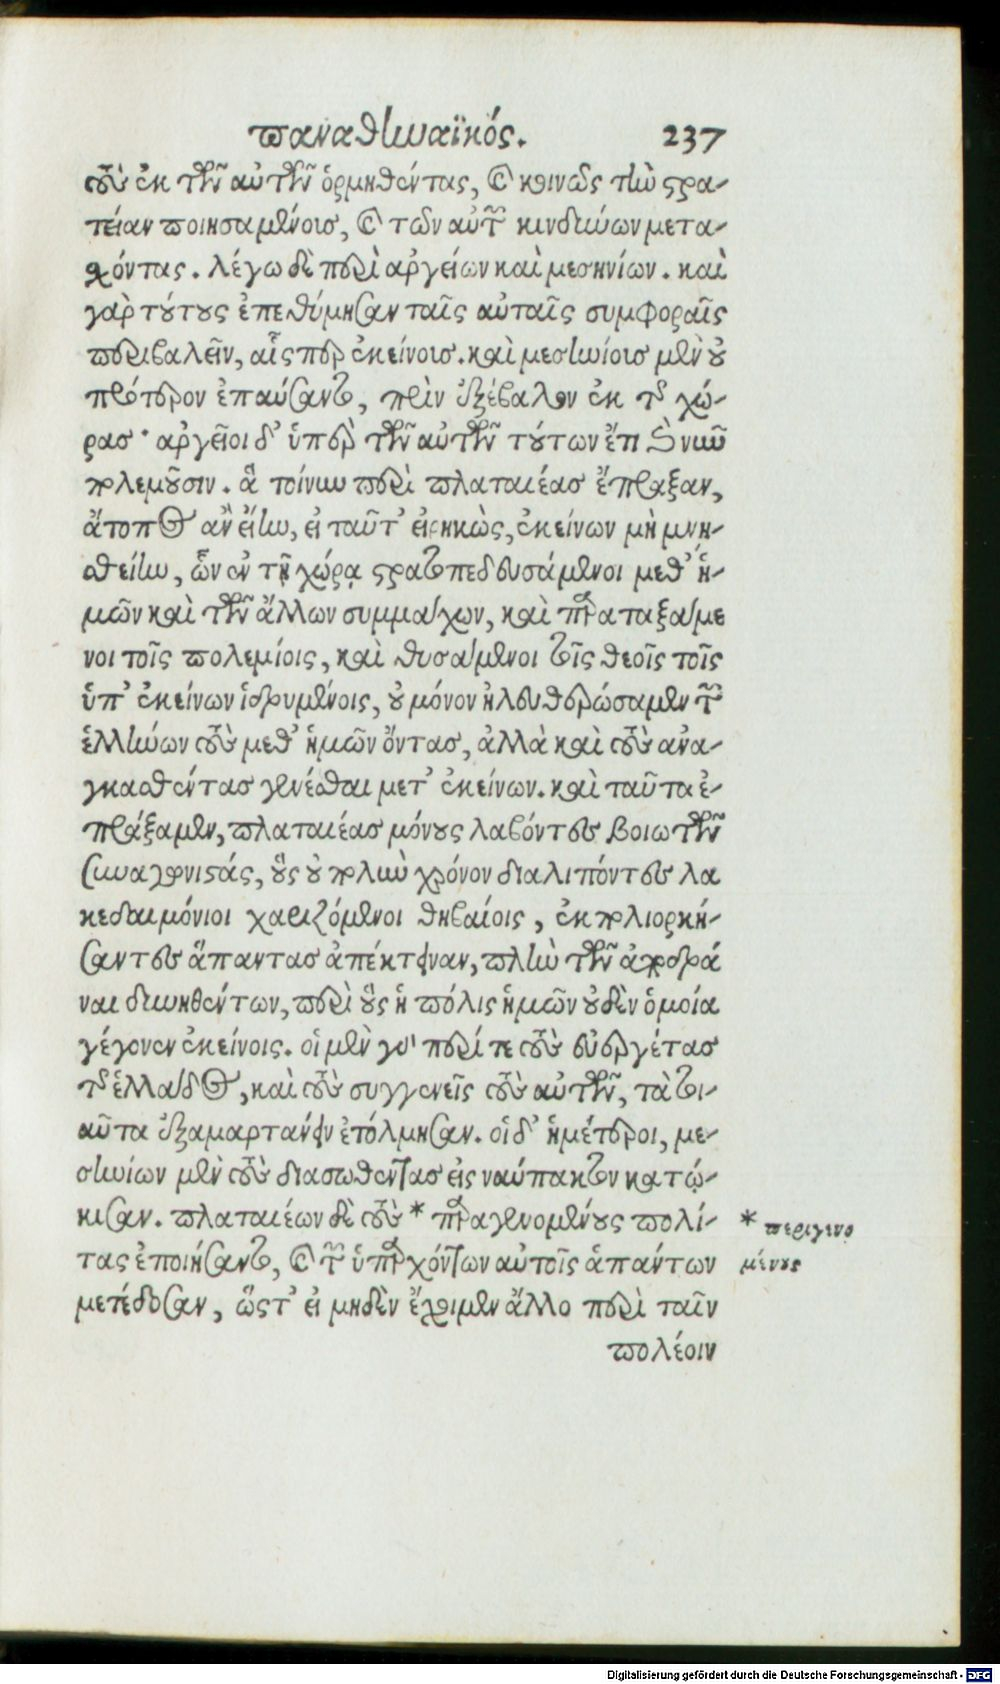 παναθηναϊκός. 237
τοὺς ἐκ τῶν αὐτῶν ὁρμηθέντας, καὶ κοινῶς τὴν στρα-
τείαν ποιησαμένοις, καὶ τῶν αὐτῶν κινδύνων μετα-
σχόντας. λέγω δὲ περὶ ἀργείων καὶ μεσηνίων. καὶ
γὰρ τούτους ἐπεθύμησαν ταῖς αὐταῖς συμφοραῖς
περιβαλεῖν, αἷς περ ἐκείνοις. καὶ μεσηνίοις μὲν οὐ
πρότερον ἐπαύσαντο, πρὶν ἐξέβαλον ἐκ τῆς χώ-
ρας· ἀργεῖοι δ' ὑπὲρ τῶν αὐτῶν τούτων ἔτι καὶ νῦν
πολεμοῦσιν. ἃ τοίνυν περὶ πλαταιέας ἔπραξαν,
ἄτοπος ἂν εἴην, εἰ ταῦτ' εἰρηκὼς, ἐκείνων μὴ μνη-
σθείην, ὧν ἐν τῇ χώρᾳ στρατοπεδευσάμενοι μεθ' ἡ-
μῶν καὶ τῶν ἄλλων συμμάχων, καὶ παραταξάμε
νοι τοῖς πολεμίοις, καὶ θυσάμενοι τοῖς θεοῖς τοῖς
ὑπ' ἐκείνων ἱδρυμένοις, οὐ μόνον ἠλευθερώσαμεν τῶν
ἑλλήνων τοὺς μεθ' ἡμῶν ὄντας, ἀλλὰ καὶ τοὺς ἀνα-
γκασθέντας γενέσθαι μετ' ἐκείνων. καὶ ταῦτα ἐ-
πράξαμεν, πλαταιέας μόνους λαβόντες βοιωτῶν
συναγωνιστάς, οὓς οὐ πολὺν χρόνον διαλιπόντες λα
κεδαιμόνιοι χαριζόμενοι θηβαίοις, ἐκπολιορκή-
σαντες ἅπαντας ἀπέκτειναν, πλὴν τῶν ἀποδρᾶ
ναι δυνηθέντων, περὶ οὓς ἡ πόλις ἡμῶν οὐδὲν ὁμοία
γέγονεν ἐκείνοις. οἱ μὲν γὰρ περί τε τοὺς εὐεργέτας
τῆς ἑλλάδος, καὶ τοὺς συγγενεῖς τοὺς αὐτῶν, τὰ τοι-
αῦτα ἐξαμαρτάνειν ἐτόλμησαν. οἱ δ' ἡμέτεροι, με-
σηνίων μὲν τοὺς διασωθέντας εἰς ναύπακτον κατῴ-
κισαν. πλαταιέων δὲ τοὺς * παραγενομένους πολί-
τας ἐποιήσαντο, καὶ τῶν ὑπαρχόντων αὐτοῖς ἁπάντων
μετέδοσαν, ὥστ' εἰ μηδὲν ἔχοιμεν ἄλλο περὶ ταῖν
πολέοιν
* περιγενο
μένους
Digitalisierung gefördert durch die Deutsche Forschungsgemeinschaft - DFG